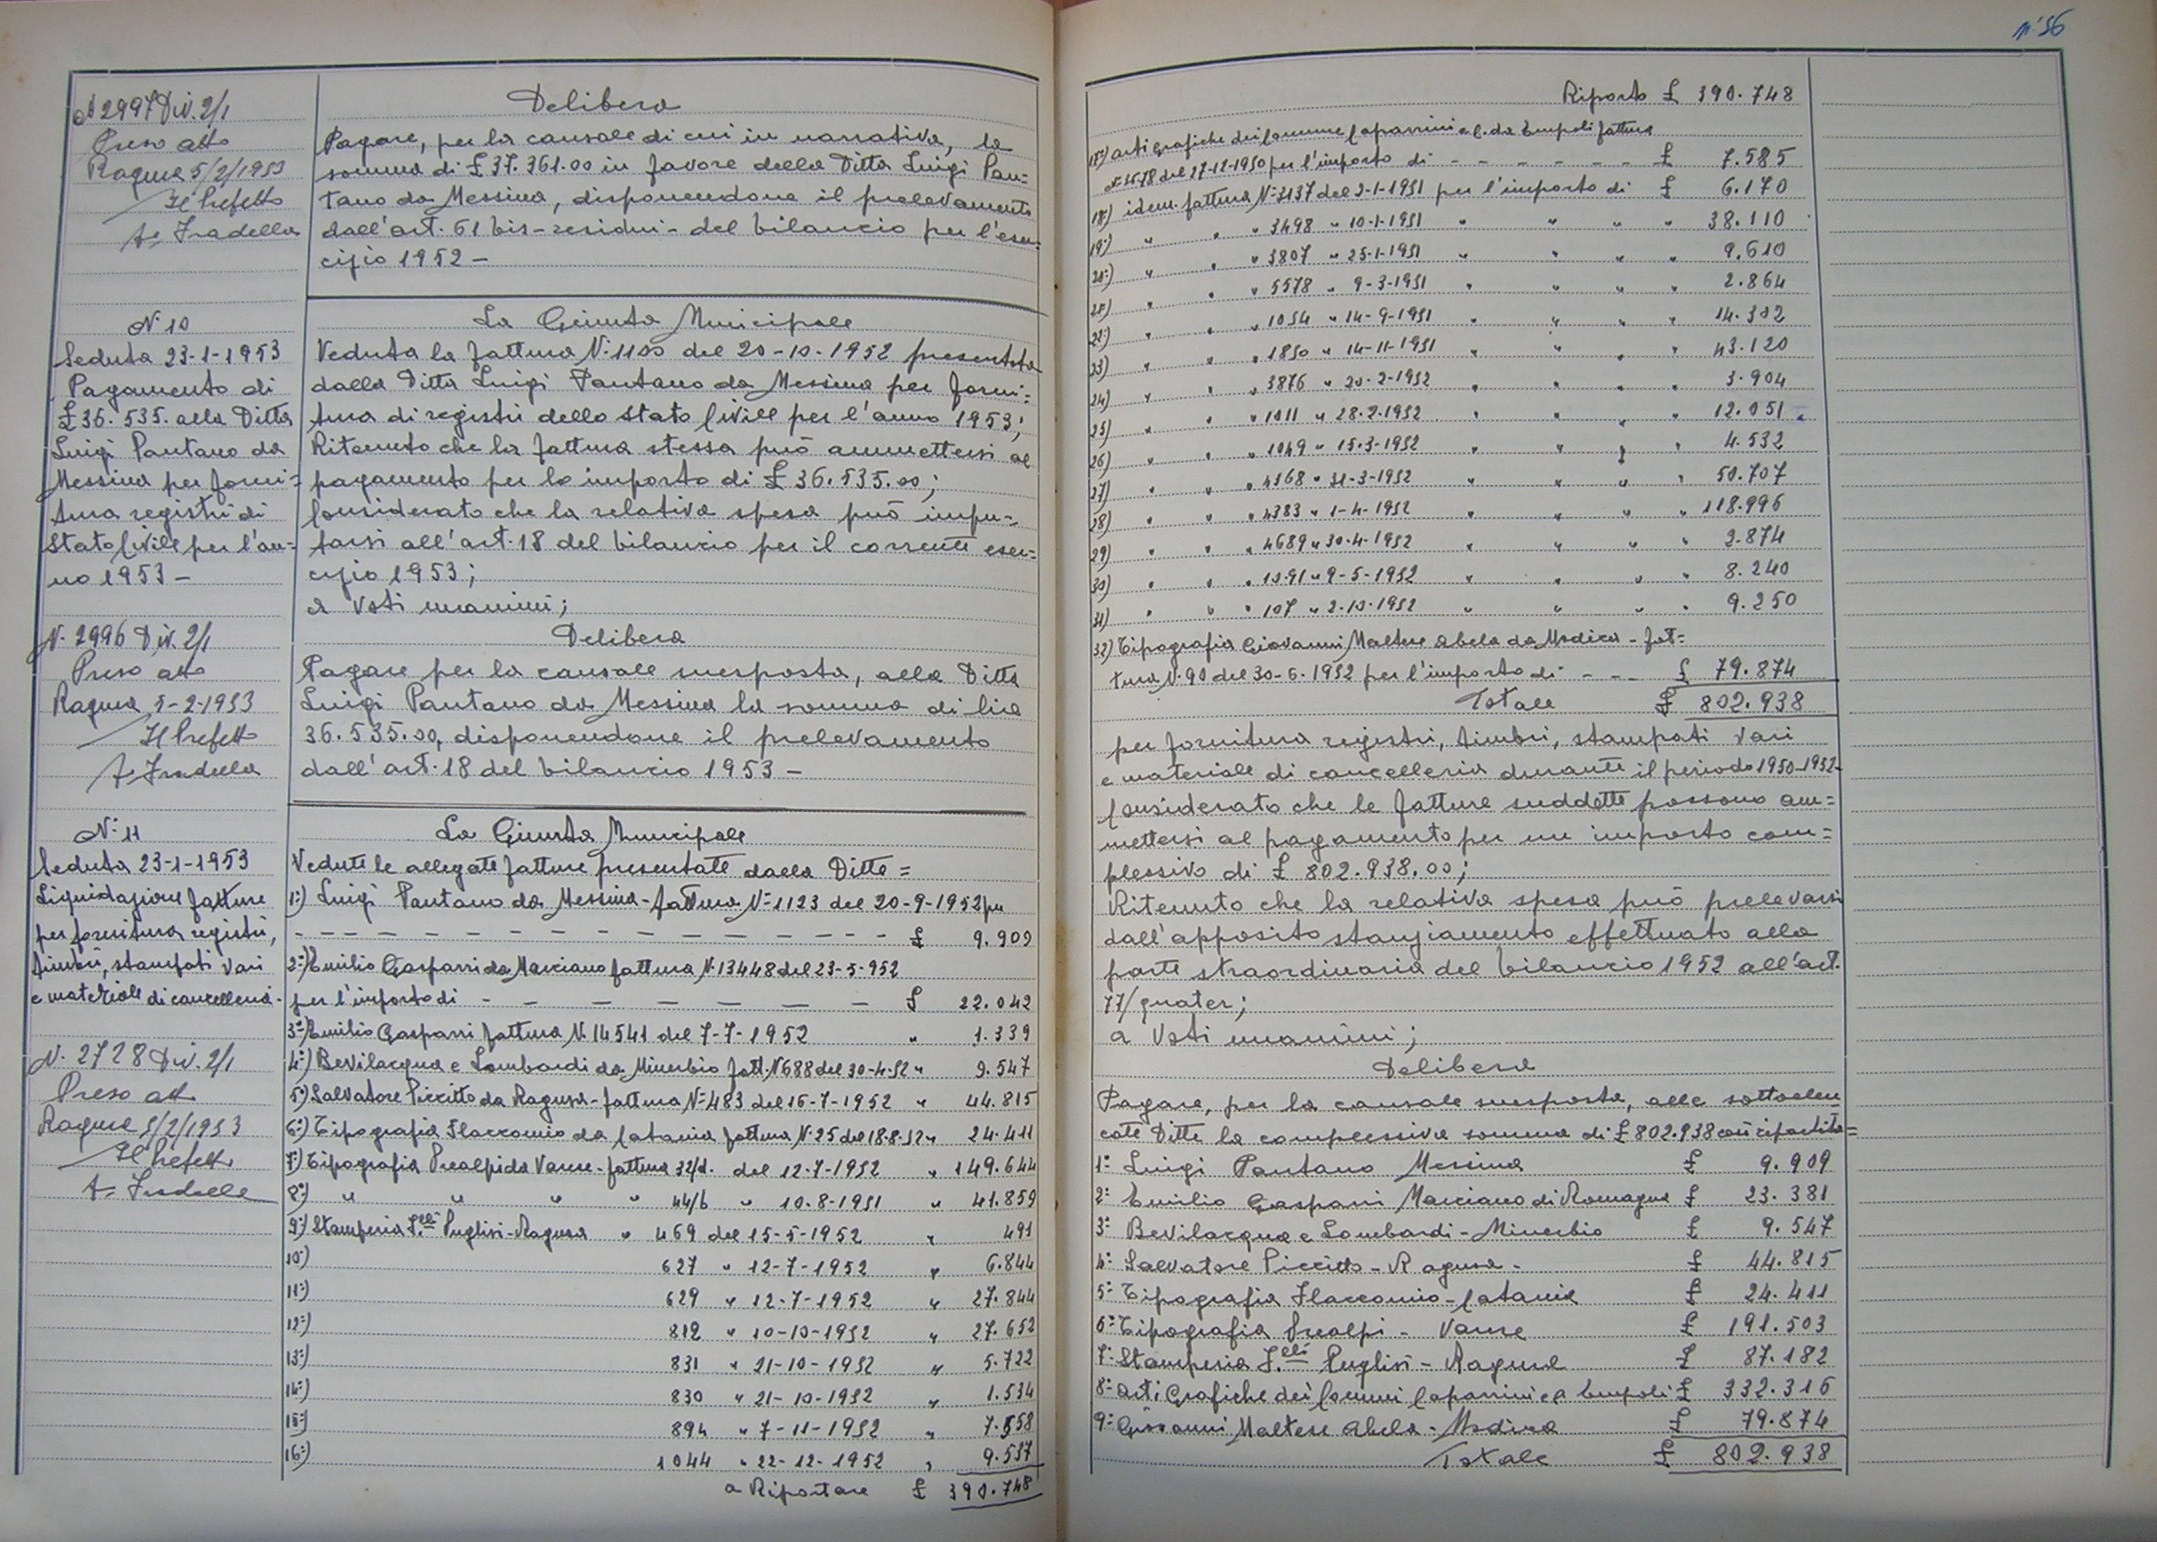 N 2997 Div. 2/1
Preso atto
Ragusa 5/2/1953
Il Prefetto
Delibera
Pagare, per la causale di cui in narrativa, la
somma di £ 37.361.00 in favore della Ditta Luigi Pan=
tano da Messina, disponendone il prelevamento
dall'art. 61 bis - residui - del bilancio per l'eser=
cizio 1952 -
N. 10
Seduta 23-1-1953
Pagamento di
£ 36.535. alla Ditta
Luigi Pantano da
Messina per forni=
tura registri di
Stato Civile per l'an=
no 1953 -
La Giunta Municipale
Veduta la fattura N. 1100 del 20-10-1952 presentata
dalla Ditta Luigi Pantano da Messina per forni=
tura di registri dello Stato Civile per l'anno 1953;
Ritenuto che la fattura stessa può ammettersi al
pagamento per lo importo di £ 36.535.00;
Considerato che la relativa spesa può impu=
tarsi all'art. 18 del bilancio per il corrente eser=
cizio 1953;
a voti unanimi;
N. 2996 Div. 2/1
Preso atto
Ragusa 5-2-1953
Il Prefetto
Delibera
Pagare per la causale suesposta, alla Ditta
Luigi Pantano da Messina la somma di lire
36.535.00, disponendone il prelevamento
dall'art. 18 del bilancio 1953 -
N. 11
Seduta 23-1-1953
Liquidazione fatture
per fornitura registri,
timbri, stampati vari
e materiale di cancelleria -
N. 2728 Div. 2/1
Preso atto
Ragusa 5/2/1953
Il Prefetto
La Giunta Municipale
Vedute le allegate fatture presentate dalle Ditte =
1°) Luigi Pantano da Messina - fattura N= 1123 del 20-9-1952 per
- - - - - - - - - - - - - - - - £ 9.909
2°) Emilio Gasparri da Marciano fattura N. 13448 del 23-5-952
per l'importo di - - - - - - - - £ 22.042
3°) Emilio Gasparri fattura N. 14541 del 7-7-1952 " 1.339
4°) Bevilacqua e Lombardi da Minerbio fatt. N 688 del 30-4-52 " 9.547
5°) Salvatore Piccitto da Ragusa - fattura N= 483 del 16-7-1952 " 44.815
6°) Tipografia Flaccomio da Catania fattura N. 25 del 18-8-52 " 24.411
7°) Tipografia Prealpi da Varese - fattura 32/d. del 12-7-1952 " 149.644
8°) " " " " 44/b " 10-8-1951 " 41.859
9°) Stamperia F.lli Puglisi - Ragusa " 469 del 15-5-1952 " 491
10°) 627 " 12-7-1952 " 6.844
11°) 629 " 12-7-1952 " 27.844
12°) 812 " 10-10-1952 " 27.652
13°) 831 " 21-10-1952 " 5.722
14°) 830 " 21-10-1952 " 1.534
15°) 894 " 7-11-1952 " 7.558
16°) 1044 " 22-12-1952 " 9.537
a Riportare £ 390.748
n° 56
Riporto £ 390.748
17°) Arti grafiche dei Comuni Caparrini e C. da Empoli fattura
N. 3678 del 27-12-1950 per l'importo di - - - - - - £ 7.585
18°) idem. fattura N= 3137 del 3-1-1951 per l'importo di £ 6.170
19°) " " " 3498 " 10-1-1951 " " " " 38.110
20°) " " " 3807 " 25-1-1951 " " " " 9.610
21°) " " " 5578 " 9-3-1951 " " " " 2.864
22°) " " " 1034 " 14-9-1951 " " " " 14.302
23) " " " 1850 " 14-11-1951 " " " " 43.120
24) " " " 3876 " 20-2-1952 " " " " 3.904
25) " " " 1011 " 28.2.1952 " " " " 12.051
26) " " " 1049 " 15.3-1952 " " " " 4.532
27) " " " 4168 " 31-3-1952 " " " " 50.707
28) " " " 4383 " 1-4-1952 " " " " 118.996
29) " " " 4689 " 30-4-1952 " " " " 2.874
30) " " " 1091 " 9-5-1952 " " " " 8.240
31) " " " 107 " 2.10.1952 " " " " 9.250
32) Tipografia Giovanni Maltese Abela da Modica - Fat=
tura N. 90 del 30-6-1952 per l'importo di - - - £ 79.874
Totale £ 802.938
per fornitura registri, timbri, stampati vari
e materiale di cancelleria durante il periodo 1950-1952-
Considerato che le fatture suddette possono am=
mettersi al pagamento per un importo com=
plessivo di £ 802.938.00;
Ritenuto che la relativa spesa può prelevarsi
dall'apposito stanziamento effettuato alla
parte straordinaria del bilancio 1952 all'art.
77/quater;
a voti unanimi;
Delibera
Pagare, per la causale suesposta, alle sottoelen
cate Ditte la complessiva somma di £ 802.938 così ripartita=
1° Luigi Pantano Messina £ 9.909
2° Emilio Gasparri Marciano di Romagna £ 23.381
3° Bevilacqua e Lombardi - Minerbio £ 9.547
4° Salvatore Piccitto - Ragusa - £ 44.815
5° Tipografia Flaccomio - Catania £ 24.411
6° Tipografia Prealpi - Varese £ 191.503
7° Stamperia F.lli Puglisi - Ragusa £ 87.182
8° Arti Grafiche dei Comuni Caparrini e C Empoli £ 332.316
9° Giovanni Maltese Abela - Modica £ 79.874
Totale £ 802.938